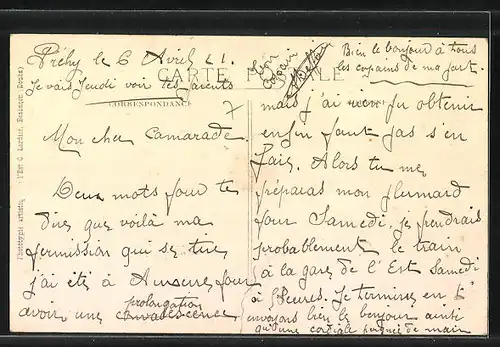 Préhy le 6 Avril 21.
Je vais Jeudi voir tes parents
CARTE POSTALE
CORRESPONDANCE
Mon cher Camarade.
Deux mots pour te
dire que voilà ma
permission qui se tire
j'ai été à Auxerre pour
avoir une prolongation
convalescence
Ton
copain
Bien le bonjour à tous
les copains de ma part.
mais j'ai rien pu obtenir
enfin faut pas s'en
faire. Alors tu me
prépares mon plumard
pour Samedi, je prendrais
probablement le train
à la gare de l'Est Samedi
à heures. Je termine en t'
envoyant bien le bonjour ainsi
qu'une cordiale poignée de main
Phototypie artistique l'Est C. Lardier, Besançon (Doubs)